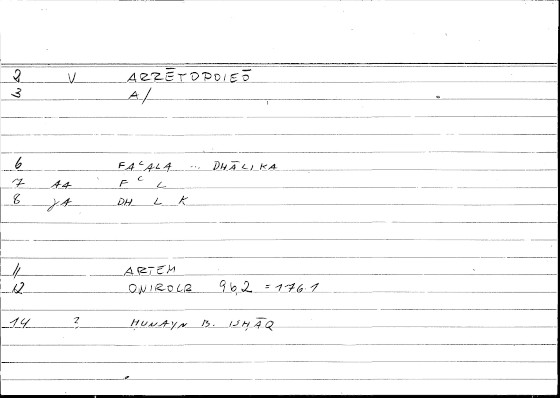 2 V ARRĒTOPOIEŌ
3 A/
6 FAᶜALA ... DHĀLIKA
7 AA F ᶜ L
8 yA DH L K
11 ARTEM
12 ONIROCR 96,2 = 176.1
14 ? HUNAYN B. ISHĀQ